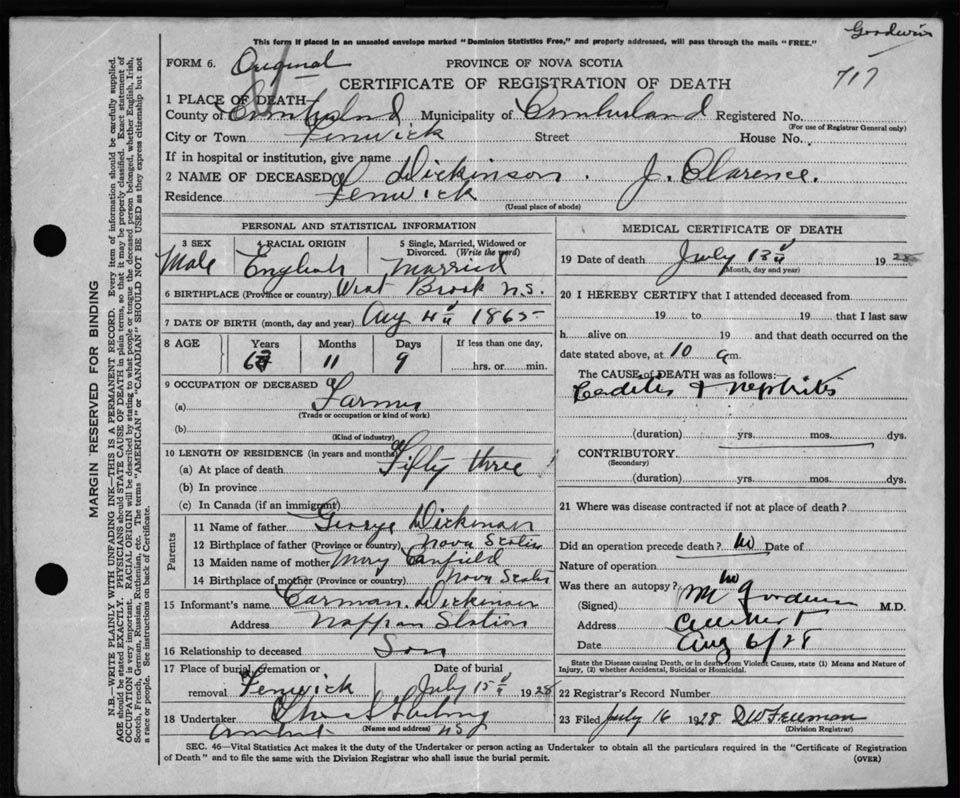 Goodwin
This form if placed in an unsealed envelope marked "Dominion Statistics Free," and properly addressed, will pass through the mails "FREE."
FORM 6. Original PROVINCE OF NOVA SCOTIA
CERTIFICATE OF REGISTRATION OF DEATH 717
1 PLACE OF DEATH
County of Cumberland Municipality of Cumberland Registered No.
(For use of Registrar General only)
City or Town Fenwick Street House No.
If in hospital or institution, give name
2 NAME OF DECEASED Dickinson. J. Clarence.
Residence Fenwick
(Usual place of abode)
PERSONAL AND STATISTICAL INFORMATION
3 SEX 4 RACIAL ORIGIN 5 Single, Married, Widowed or Divorced. (Write the word)
Male English Married
6 BIRTHPLACE (Province or country) West Brook N.S.
7 DATE OF BIRTH (month, day and year) Aug 4th 1865
8 AGE Years Months Days If less than one day,
11 9 hrs. or min.
9 OCCUPATION OF DECEASED
(a) Farmer
(Trade or occupation or kind of work)
(b)
(Kind of industry)
10 LENGTH OF RESIDENCE (in years and months)
(a) At place of death Fifty three
(b) In province
(c) In Canada (if an immigrant)
Parents
11 Name of father George Dickinson
12 Birthplace of father (Province or country) Nova Scotia
13 Maiden name of mother Mary Canfield
14 Birthplace of mother (Province or country) Nova Scotia
15 Informant's name Carman Dickinson
Address Nappan Station
16 Relationship to deceased Son
17 Place of burial, cremation or removal Date of burial
Fenwick July 15th 1928
18 Undertaker
Amherst (Name and address) NS
MEDICAL CERTIFICATE OF DEATH
19 Date of death July 13th 1928
(Month, day and year)
20 I HEREBY CERTIFY that I attended deceased from
19 to 19 that I last saw
h alive on 19 and that death occurred on the
date stated above, at 10 a m.
The CAUSE of DEATH was as follows:
& nephritis
(duration) yrs. mos. dys.
CONTRIBUTORY
(Secondary)
(duration) yrs. mos. dys.
21 Where was disease contracted if not at place of death?
Did an operation precede death? no Date of
Nature of operation
Was there an autopsy? no
(Signed) Goodwin M.D.
Address Amherst
Date Aug 6/28
State the Disease causing Death, or in death from Violent Causes, state (1) Means and Nature of Injury, (2) whether Accidental, Suicidal or Homicidal.
22 Registrar's Record Number
23 Filed July 16 1928 D W Freeman
(Division Registrar)
SEC. 46—Vital Statistics Act makes it the duty of the Undertaker or person acting as Undertaker to obtain all the particulars required in the "Certificate of Registration
of Death" and to file the same with the Division Registrar who shall issue the burial permit. (OVER)
MARGIN RESERVED FOR BINDING
N.B.—WRITE PLAINLY WITH UNFADING INK—THIS IS A PERMANENT RECORD. Every item of information should be carefully supplied.
AGE should be stated EXACTLY. PHYSICIANS should STATE CAUSE OF DEATH in plain terms, so that it may be properly classified. Exact statement of
OCCUPATION is very important. RACIAL ORIGIN will be described by stating to what people or tongue the deceased person belonged, whether English, Irish,
Scotch, French, German, Russian, Ruthenian, etc. The terms "AMERICAN" or "CANADIAN" SHOULD NOT BE USED as they express citizenship but not
a race or people. See instructions on back of Certificate.